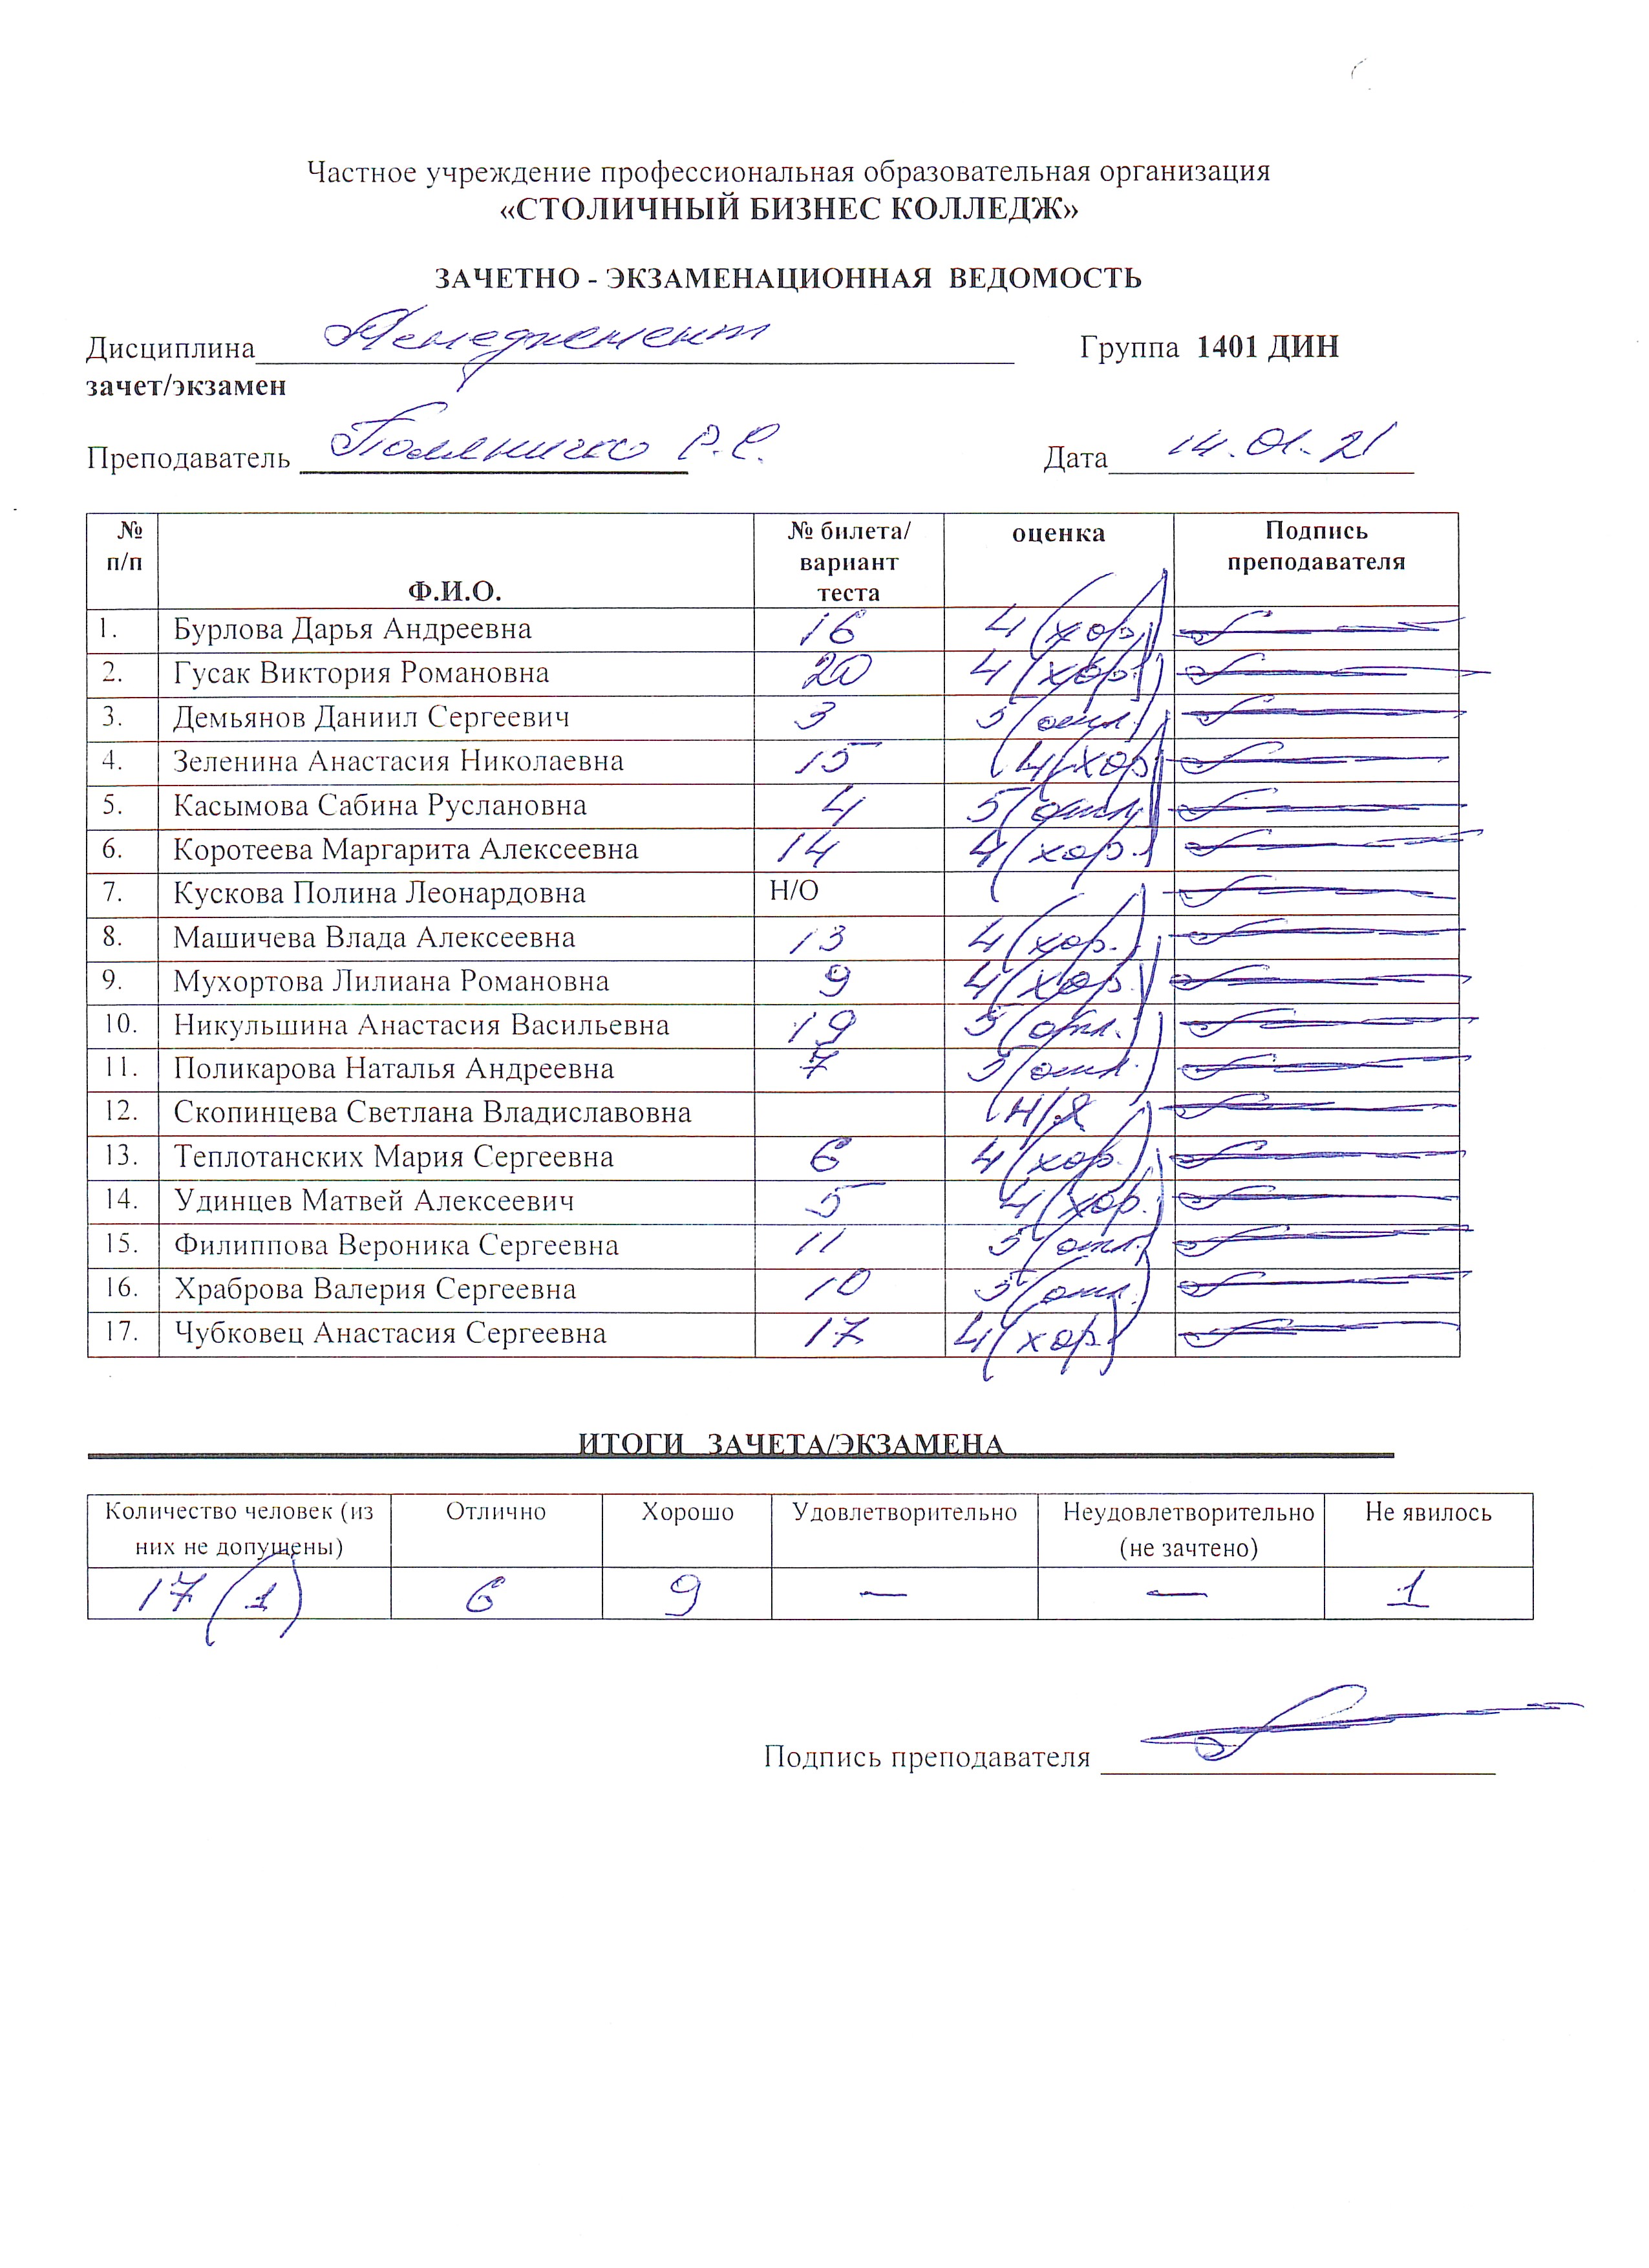 Частное учреждение профессиональная образовательная организация
«СТОЛИЧНЫЙ БИЗНЕС КОЛЛЕДЖ»
ЗАЧЕТНО - ЭКЗАМЕНАЦИОННАЯ ВЕДОМОСТЬ
Дисциплина Менеджмент Группа 1401 ДИН
зачет/экзамен
Преподаватель Р.С. Дата 14.01.21
№ п/п Ф.И.О. № билета/ вариант теста оценка Подпись преподавателя
1. Бурлова Дарья Андреевна 16 4 (хор.)
2. Гусак Виктория Романовна 20 4 (хор.)
3. Демьянов Даниил Сергеевич 3 5 (отл.)
4. Зеленина Анастасия Николаевна 15 4 (хор)
5. Касымова Сабина Руслановна 4 5 (отл.)
6. Коротеева Маргарита Алексеевна 14 4 (хор.)
7. Кускова Полина Леонардовна Н/О
8. Машичева Влада Алексеевна 13 4 (хор.)
9. Мухортова Лилиана Романовна 9 4 (хор.)
10. Никульшина Анастасия Васильевна 19 5 (отл.)
11. Поликарова Наталья Андреевна 7 5 (отл.)
12. Скопинцева Светлана Владиславовна н/я
13. Теплотанских Мария Сергеевна 6 4 (хор.)
14. Удинцев Матвей Алексеевич 5 4 (хор.)
15. Филиппова Вероника Сергеевна 11 5 (отл.)
16. Храброва Валерия Сергеевна 10 5 (отл.)
17. Чубковец Анастасия Сергеевна 17 4 (хор.)
ИТОГИ ЗАЧЕТА/ЭКЗАМЕНА
Количество человек (из них не допущены) Отлично Хорошо Удовлетворительно Неудовлетворительно (не зачтено) Не явилось
17 (1) 6 9 — — 1
Подпись преподавателя